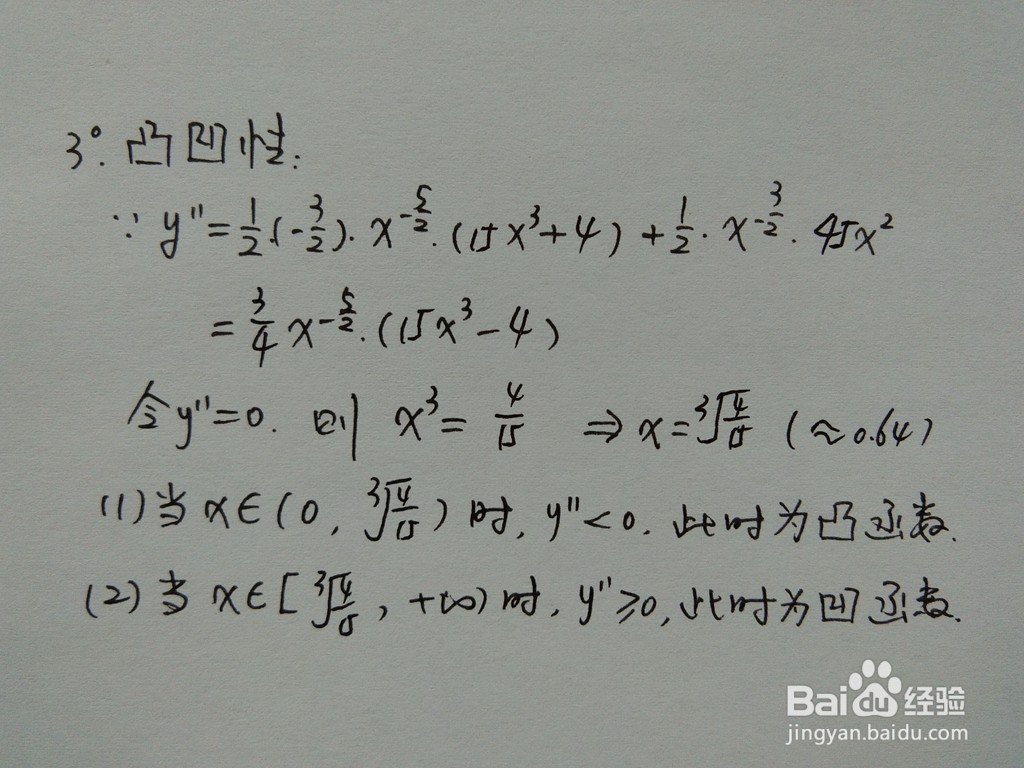 3°. 凸凹性:
∵ y″=1/2·(-3/2)·x^(-5/2)·(15x³+4)+1/2·x^(-3/2)·45x²
=3/4 x^(-5/2)·(15x³-4)
令y″=0. 则 x³=4/15 ⇒x=³√(4/15) (≈0.64)
(1)当x∈(0, ³√(4/15))时, y″<0. 此时为凸函数.
(2)当x∈[³√(4/15), +∞)时, y″≥0, 此时为凹函数.
Bai du 经验
jingyan.baidu.com